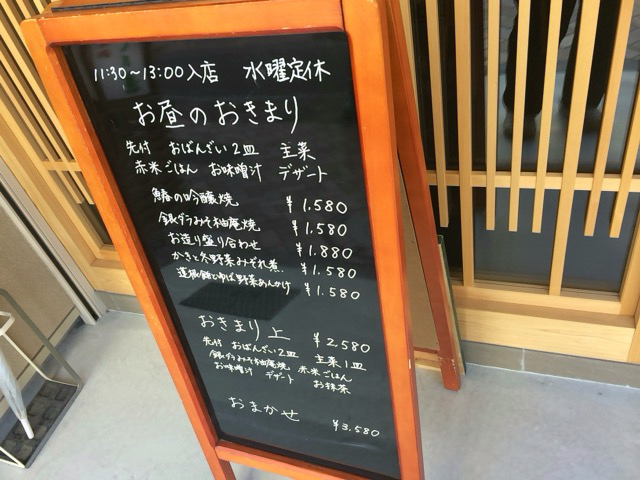 11:30〜13:00入店 水曜定休
お昼のおきまり
先付 おばんざい2皿 主菜
赤米ごはん お味噌汁 デザート
鰆の吟醸焼 ¥1.580
銀ダラみそ柚庵焼 ¥1.580
お造り盛り合わせ ¥1.880
かきと冬野菜みぞれ煮 ¥1.580
蓮根饅頭とゆば野菜あんかけ ¥1.580
おきまり上 ¥2580
先付 おばんざい2皿 主菜1皿
銀ダラみそ柚庵焼 赤米ごはん
お味噌汁 デザート お抹茶
おまかせ ¥3.580